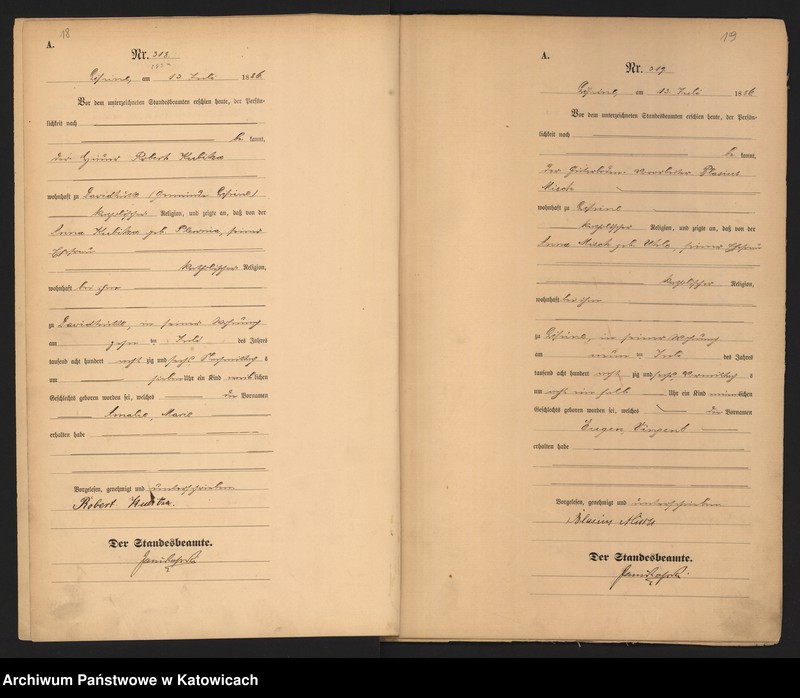 18
A.
Nr. 318.
am 13 Juli 1886.
Vor dem unterzeichneten Standesbeamten erschien heute, der Persön-
lichkeit nach
be kannt,
der Robert Kubitza
wohnhaft zu (Gemeinde
katholischer Religion, und zeigte an, daß von der
Anna Kubitza geb. seiner
Ehefrau
katholischer Religion,
wohnhaft bei ihm
zu in seiner Wohnung
am zehn ten Juli des Jahres
tausend acht hundert acht zig und sechs Nachmittag s
um sieben Uhr ein Kind weib lichen
Geschlechts geboren worden sei, welches die Vornamen
Amalie, Marie
erhalten habe
Vorgelesen, genehmigt und unterschrieben
Robert Kubitza.
Der Standesbeamte.
19
A.
Nr. 319
am 13. Juli 1886
Vor dem unterzeichneten Standesbeamten erschien heute, der Persön-
lichkeit nach
be kannt,
der Vorarbeiter Blasius
wohnhaft zu
katholischer Religion, und zeigte an, daß von der
Anna geb. seiner Ehefrau
katholischer Religion,
wohnhaft bei ihm
zu in seiner Wohnung
am neun ten Juli des Jahres
tausend acht hundert acht zig und sechs Vormittag s
um acht ein halb Uhr ein Kind männ lichen
Geschlechts geboren worden sei, welches die Vornamen
Eugen, Vinzent
erhalten habe
Vorgelesen, genehmigt und unterschrieben
Blasius
Der Standesbeamte.
Archiwum Państwowe w Katowicach